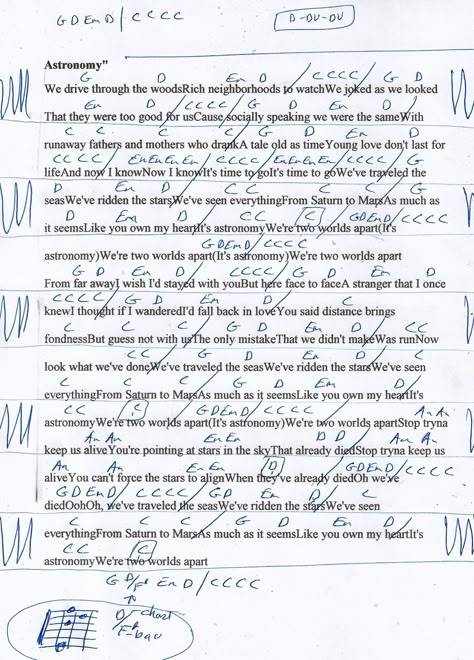 G D Em D / C C C C
D-DU-DU
Astronomy"
G D Em D / C C C C / G D
We drive through the woodsRich neighborhoods to watchWe joked as we looked
Em D / C C C C / G D Em D
That they were too good for usCause socially speaking we were the sameWith
C C C C G D Em D
runaway fathers and mothers who drankA tale old as timeYoung love don't last for
C C C C / Em Em Em Em / C C C C / Em Em Em Em / C C C C / G
lifeAnd now I knowNow I knowIt's time to goIt's time to goWe've traveled the
D Em D C C C C G
seasWe've ridden the starsWe've seen everythingFrom Saturn to MarsAs much as
D Em D C C C G D Em D / C C C C
it seemsLike you own my heartIt's astronomyWe're two worlds apart(It's
G D Em D / C C C C
astronomy)We're two worlds apart(It's astronomy)We're two worlds apart
G D Em D C C C C / G D Em D
From far awayI wish I'd stayed with youBut here face to faceA stranger that I once
C C C C / G D Em D C
knewI thought if I wanderedI'd fall back in loveYou said distance brings
C C C G D Em D C C
fondnessBut guess not with usThe only mistakeThat we didn't makeWas runNow
C C G D Em D C
look what we've doneWe've traveled the seasWe've ridden the starsWe've seen
C C C G D Em D
everythingFrom Saturn to MarsAs much as it seemsLike you own my heartIt's
C C C G D Em D / C C C C Am Am
astronomyWe're two worlds apart(It's astronomy)We're two worlds apartStop tryna
Am Am Em Em D D Am Am
keep us aliveYou're pointing at stars in the skyThat already diedStop tryna keep us
Am Em Em D G D Em D / C C C C
aliveYou can't force the stars to alignWhen they've already diedOh we've
G D Em D / C C C C / G D Em D C
diedOohOh, we've traveled the seasWe've ridden the starsWe've seen
C C C G D Em D
everythingFrom Saturn to MarsAs much as it seemsLike you own my heartIt's
C C C
astronomyWe're two worlds apart
G D/F# Em D / C C C C
D/F#
chord